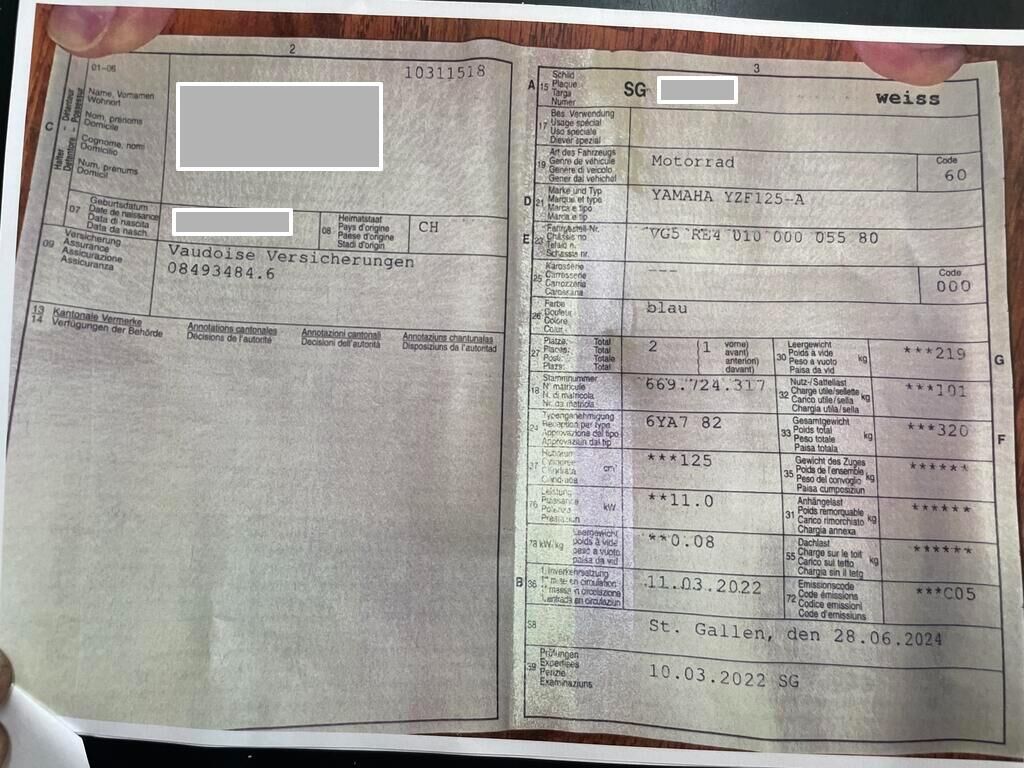 2
01-06
10311518
C
Halter
Détenteur
Detentore
Possessur
Name, Vornamen
Wohnort
Nom, prénoms
Domicile
Cognome, nomi
Domicilio
Num, prenums
Domicil
07
Geburtsdatum
Date de naissance
Data di nascita
Data da nasch.
08
Heimatstaat
Pays d'origine
Paese d'origine
Stadi d'origin
CH
09
Versicherung
Assurance
Assicurazione
Assicuranza
Vaudoise Versicherungen
08493484.6
13
14
Kantonale Vermerke
Verfügungen der Behörde
Annotations cantonales
Décisions de l'autorité
Annotazioni cantonali
Decisioni dell'autorità
Annotaziuns chantunalas
Disposiziuns da l'autoritad
3
A
15
Schild
Plaque
Targa
Numer
SG
weiss
17
Bes. Verwendung
Usage spécial
Uso speciale
Diever spezial
19
Art des Fahrzeugs
Genre de véhicule
Genere di veicolo
Gener dal vehichel
Motorrad
Code
60
D
21
Marke und Typ
Marque et type
Marca e tipo
Marca e tip
YAMAHA YZF125-A
E
23
Fahrgestell-Nr.
Châssis no
Telaio n.
Schassis nr.
VG5 RE4 010 000 055 80
25
Karosserie
Carrosserie
Carrozzeria
Carossaria
---
Code
000
26
Farbe
Couleur
Colore
Colur
blau
27
Plätze: Total
Places: Total
Posti: Totale
Plazs: Total
2
(1
vorne)
avant)
anteriori)
davant)
30
Leergewicht
Poids à vide
Peso a vuoto
Paisa da vid
kg
***219
G
18
Stammnummer
N° matricule
N. di matricola
Nr. da matricla
669.724.317
32
Nutz-/Sattellast
Charge utile/sellette
Carico utile/sella
Chargia utila/sella
kg
***101
24
Typengenehmigung
Réception par type
Approvazione del tipo
Approvaziun dal tip
6YA7 82
33
Gesamtgewicht
Poids total
Peso totale
Paisa totala
kg
***320
F
37
Hubraum
Cylindrée
Cilindrata
Cilindrada
cm³
***125
35
Gewicht des Zuges
Poids de l'ensemble
Peso del convoglio
Paisa cumposiziun
kg
******
76
Leistung
Puissance
Potenza
Prestaziun
kW
**11.0
31
Anhängelast
Poids remorquable
Carico rimorchiato
Chargia annexa
kg
******
78 kW/kg
Leergewicht
poids à vide
peso a vuoto
paisa da vid
**0.08
55
Dachlast
Charge sur le toit
Carico sul tetto
Chargia sin il tetg
kg
******
B
36
1. Inverkehrsetzung
1re mise en circulation
1a messa in circolazione
1. entrada en circulaziun
11.03.2022
72
Emissionscode
Code émissions
Codice emissioni
Code d'emissiuns
***C05
38
St. Gallen, den 28.06.2024
39
Prüfungen
Expertises
Perizie
Examinaziuns
10.03.2022 SG